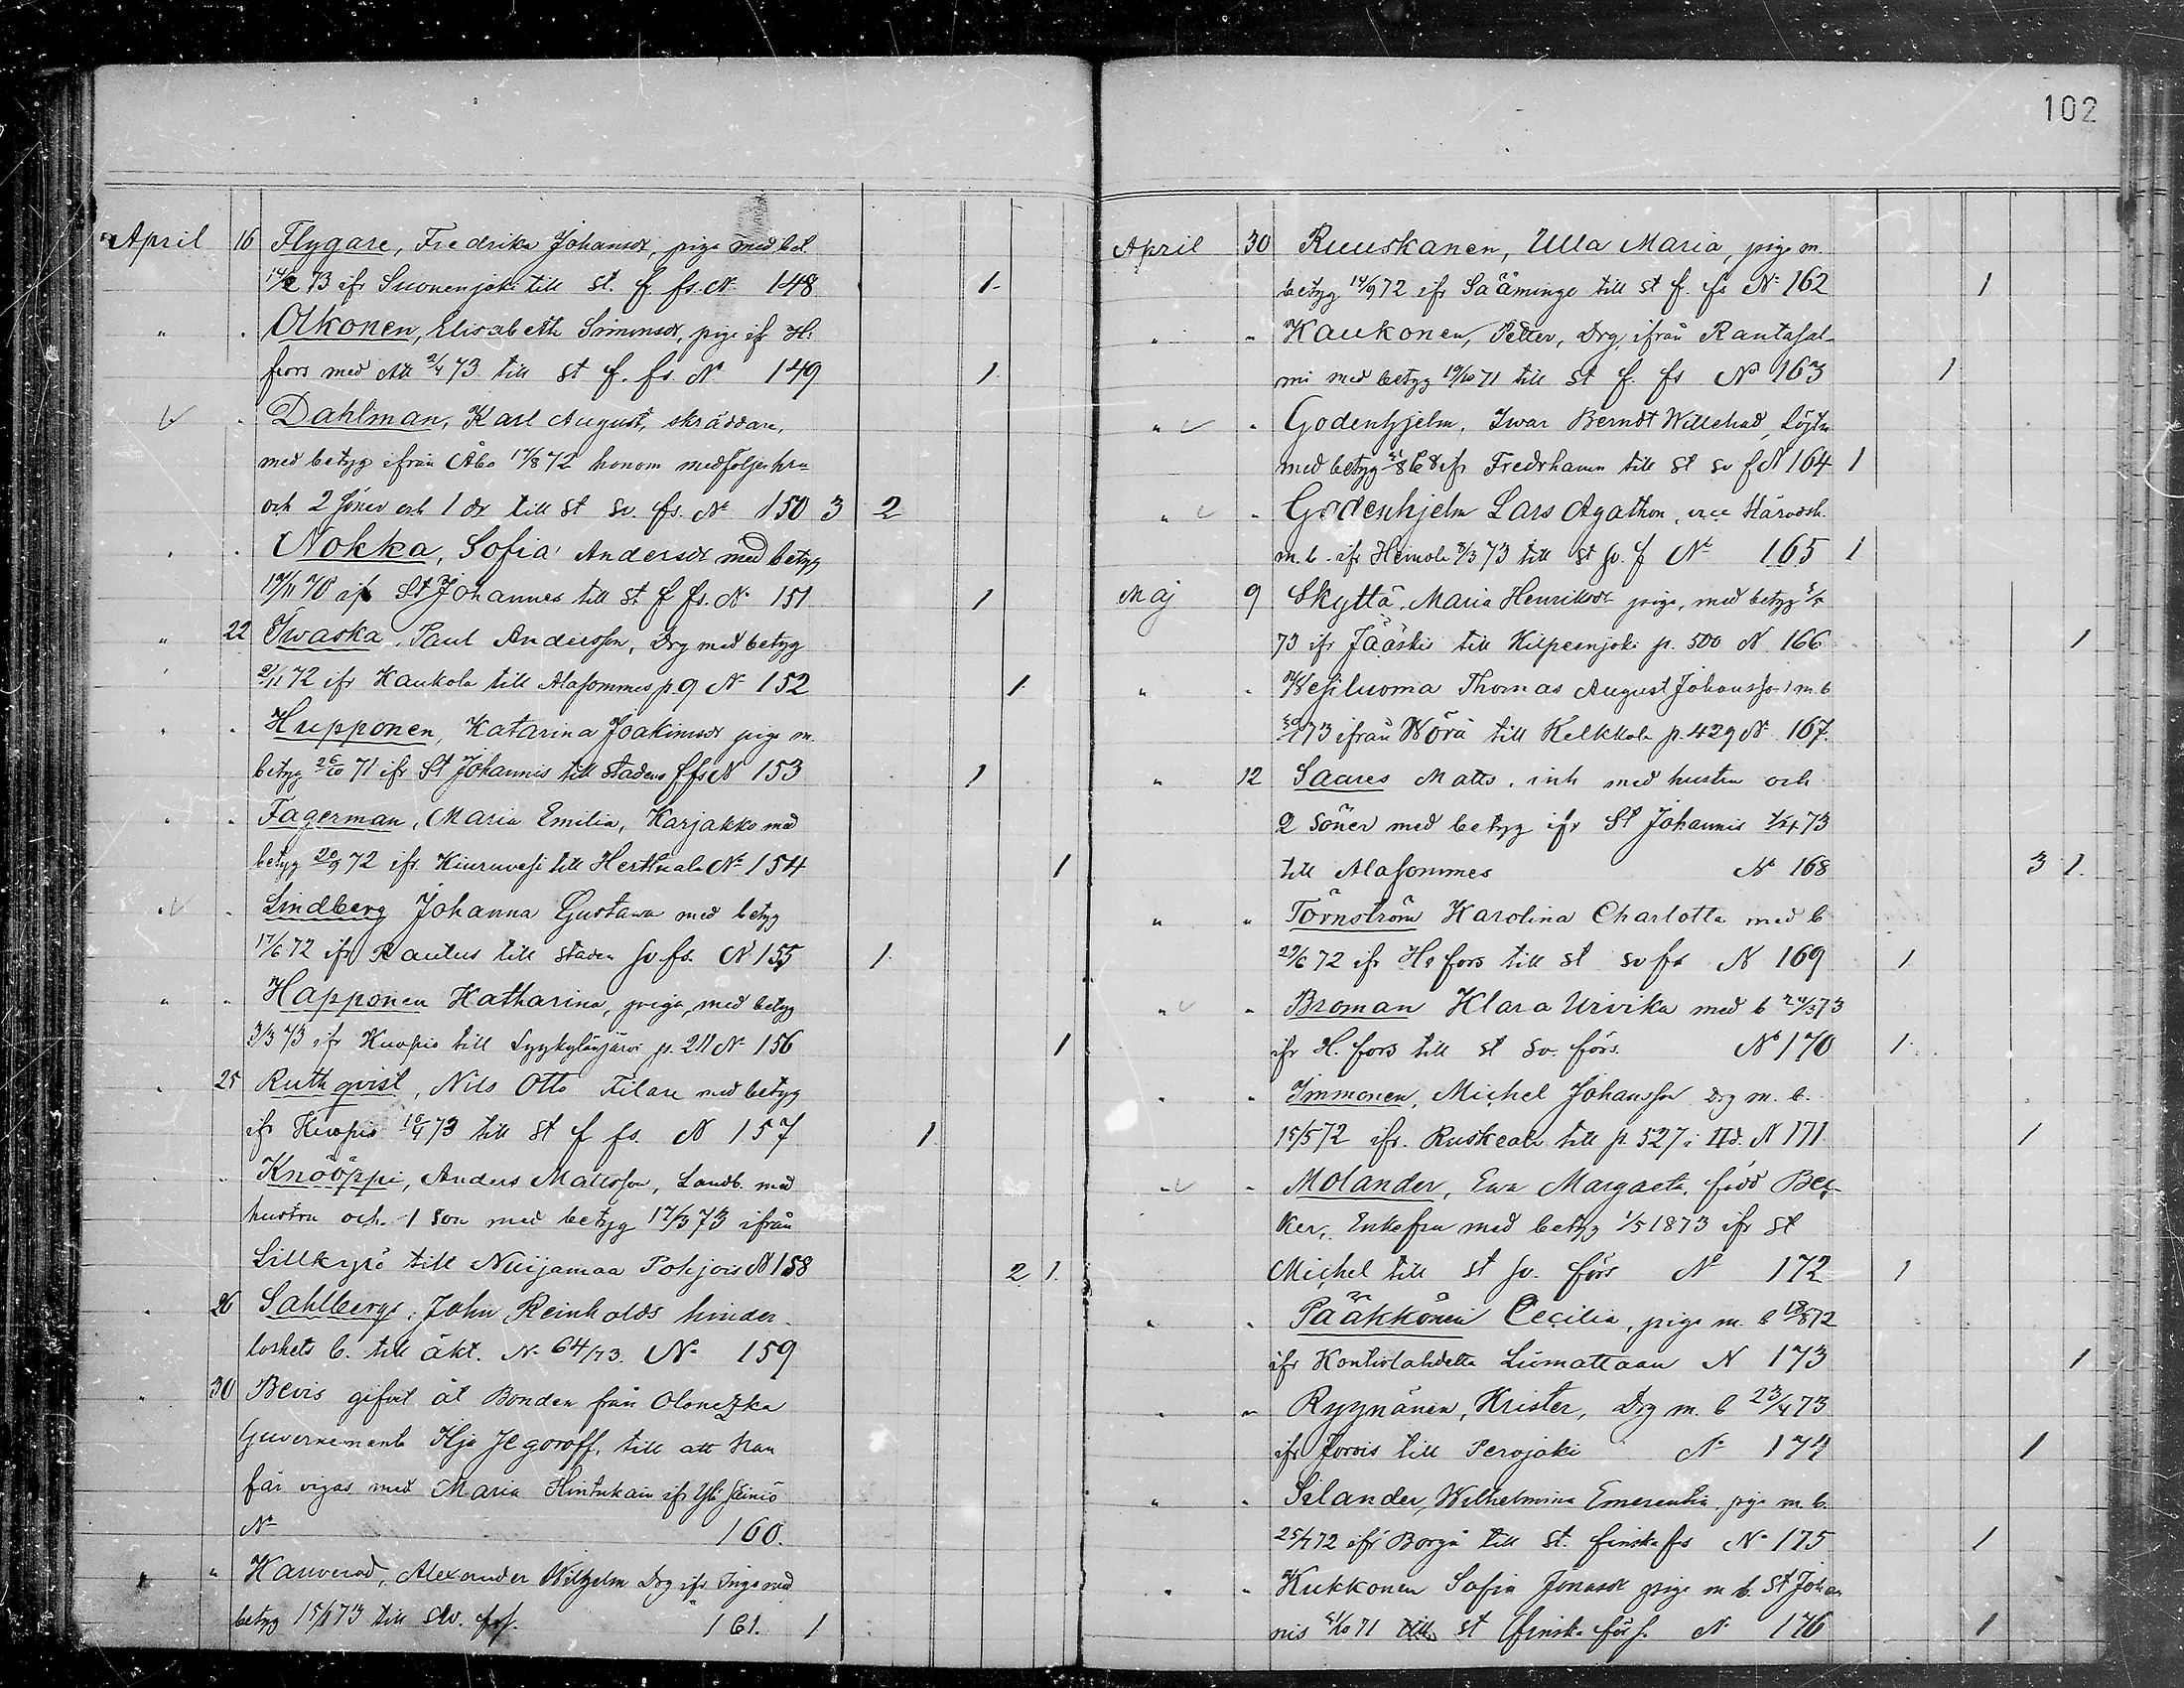 102
April 16 Flygare, Fredrika Johansdr, piga med bet.
14/2 73 ifr Suonenjoki till St. f. fs. N 148 1.
" . Olkonen, Elisabeth Simonsdr, piga if H:
fors med Att 2/4 73 till St f. fs. N 149 1.
. Dahlman, Karl August, skräddare,
med betyg ifrån Åbo 17/8 72 honom medföljer hru
och 2 söner och 1 dr till St sv. fs. N 150 3 2
. . Nokka, Sofia Andersdr med betyg
19/11 70 if St Johannes till St f fs. N 151 1
" 22 Iwaska, Paul Andersson, Drg med betyg
2/11 72 ifr Kaukola till Alasommes p. 9 N 152 1.
" . Hupponen, Katarina Joakimsdr piga m.
betyg 26/10 71 ifr St Johannis till stadens f fs N 153 1
" " Fagerman, Maria Emilia, Karjakko med
betyg 20/9 72 ifr. Kiuruvesi till Herttuala N 154 1
" . Lindberg Johanna Gustava med betyg
17/6 72 ifr Rautus till staden sv. fs. N 155 1.
" " Happonen Katharina, piga, med betyg
3/3 73 ifr Kuopio till Lyykylänjärvi p. 211 N 156 1
. 25 Ruthqvist, Nils Otto Filare med betyg
ifr Kuopio 10/4 73 till St f fs. N 157 1.
. " Knööppi, Anders Matsson, Landb. med
hustru och 1 son med betyg 17/3 73 ifrån
Lillkyrö till Nuijamaa Pohjois N 158 2 1.
. 26 Sahlbergs, John Reinholds hinder-
löshets b. till äkt. N 64/73. N 159
" 30 Bevis gifvit åt Bonden från Olonezka
Guvernement Ilja Jegoroff, till att han
får vigas med Maria Hintukain ifr Yli Säiniö
N 160.
" Alexander Wilhelm Drg ifr Ingo med
betyg 15/1 73 till Sv. förs. 161. 1
April 30 Ruuskanen, Ulla Maria, piga m.
betyg 14/9 72 ifr Sääminge till St f. fs N 162 1
. " Kaukonen, Petter, Drg, ifrån Rantasal-
mi med betyg 19/10 71 till St f. fs N 163 1
" " Godenhjelm, Iwar Berndt Willehad, Löjtn
med betyg 868 ifr Fredrhamn till St sv f N 164 1
" " Godenhjelm Lars Agathon, vice Häradsh.
m. b. ifr Heinola 8/3 73 till St sv. f N 165 1
Maj 9 Skyttä, Maria Henriksdr piga, med betyg
73 ifr Jääskis till Kilpeenjoki p. 500 N 166 1
" " Wesiluoma Thomas August Johansson m. b
73 ifrån Wörå till Kelkkala p. 429 N 167.
" 12 Saares Matts, inh med hustru och
2 söner med betyg ifr St Johannis 73
till Alasommes N 168 3 1.
" " Törnström Karolina Charlotta med b
29/6 72 ifr H:fors till St sv fs N 169 1
" " Broman Klara Ulrika med b 24/3 73
ifr H. fors till St sv. förs. N 170 1.
. " Immonen, Michel Johansson Drg m. b.
15/5 72 ifr. Ruskeala till p. 527 i IId. N 171 1
" " Molander, Ewa Margaeta, född Bec-
ker, Enkefru med betyg 1/5 1873 ifr St
Michel till St sv. förs N 172 1
. . Pääkkönen Cecilia, piga m. b 872
ifr Kontiolahdelta Liimattaan N 173 1
. " Ryynänen, Krister, Drg m. b 23/4 73
ifr Jorois till Perojoki N 174 1
" . Silander, Wilhelmina Emerentia piga m. b.
25/7 72 ifr Borgå till St. finska fs N 175 1
. " Kukkonen Sofia Jonasdr piga m b. St Johan
nis 21/10 71 till St finska förs. N 176 1